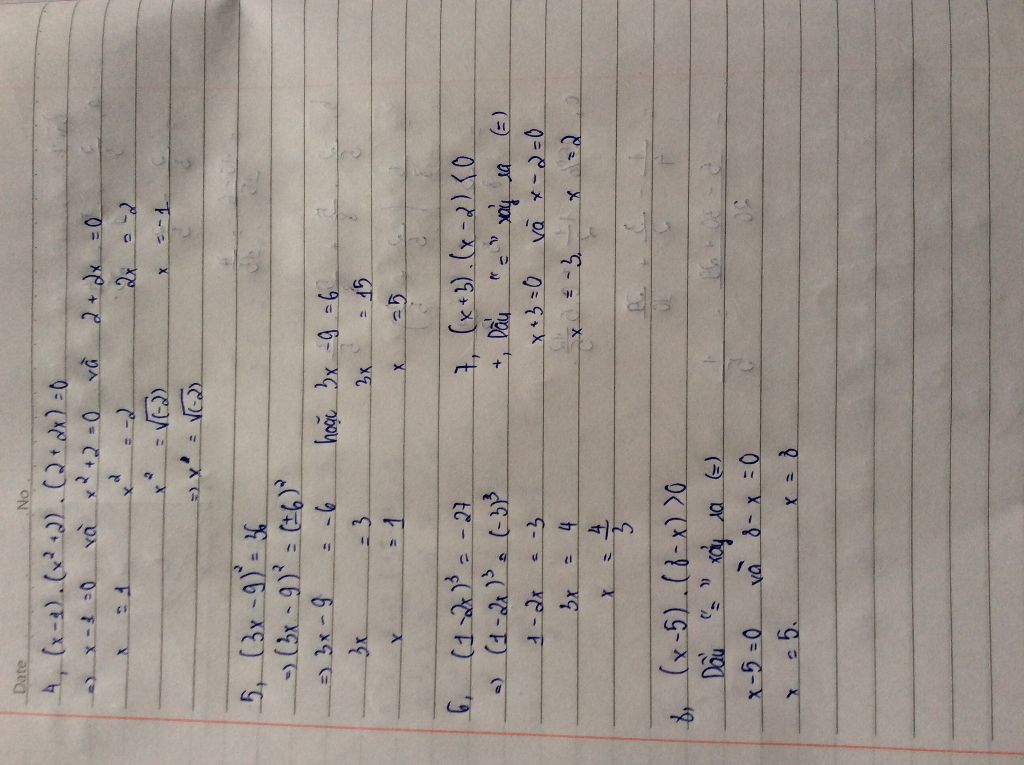 Date No
4, (x-1).(x²+2).(2+2x)=0
=> x-1=0 và x²+2=0 và 2+2x=0
x =1 x² = -2 2x = -2
x² = √(-2) x = -1
=> x = √(-2)
5, (3x-9)² = 36
=> (3x-9)² = (±6)²
=> 3x-9 = -6 hoặc 3x-9 = 6
3x = 3 3x = 15
x = 1 x = 5
6, (1-2x)³ = -27 7, (x+3).(x-2)<0
=> (1-2x)³ = (-3)³ +, Dấu "=" xảy ra (=)
1-2x = -3 x+3=0 và x-2=0
3x = 4 x = -3 x = 2
x = 4/3
8, (x-5).(8-x)>0
Dấu "=" xảy ra (=)
x-5=0 và 8-x=0
x = 5. x = 8